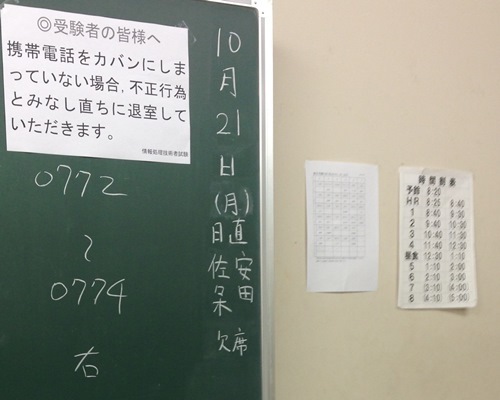 ◎受験者の皆様へ
携帯電話をカバンにしま
っていない場合,不正行為
とみなし直ちに退室して
いただきます。
情報処理技術者試験
0772
〜
0774
右
10月21日(月)
日直 安田
佐
欠席
時間割表
予鈴 8:20
HR 8:25 8:40
1 8:40 9:30
2 9:40 10:30
3 10:40 11:30
4 11:40 12:30
昼食 12:30 1:10
5 1:10 2:00
6 2:10 3:00
7 (3:10) (4:00)
8 (4:10) (5:00)